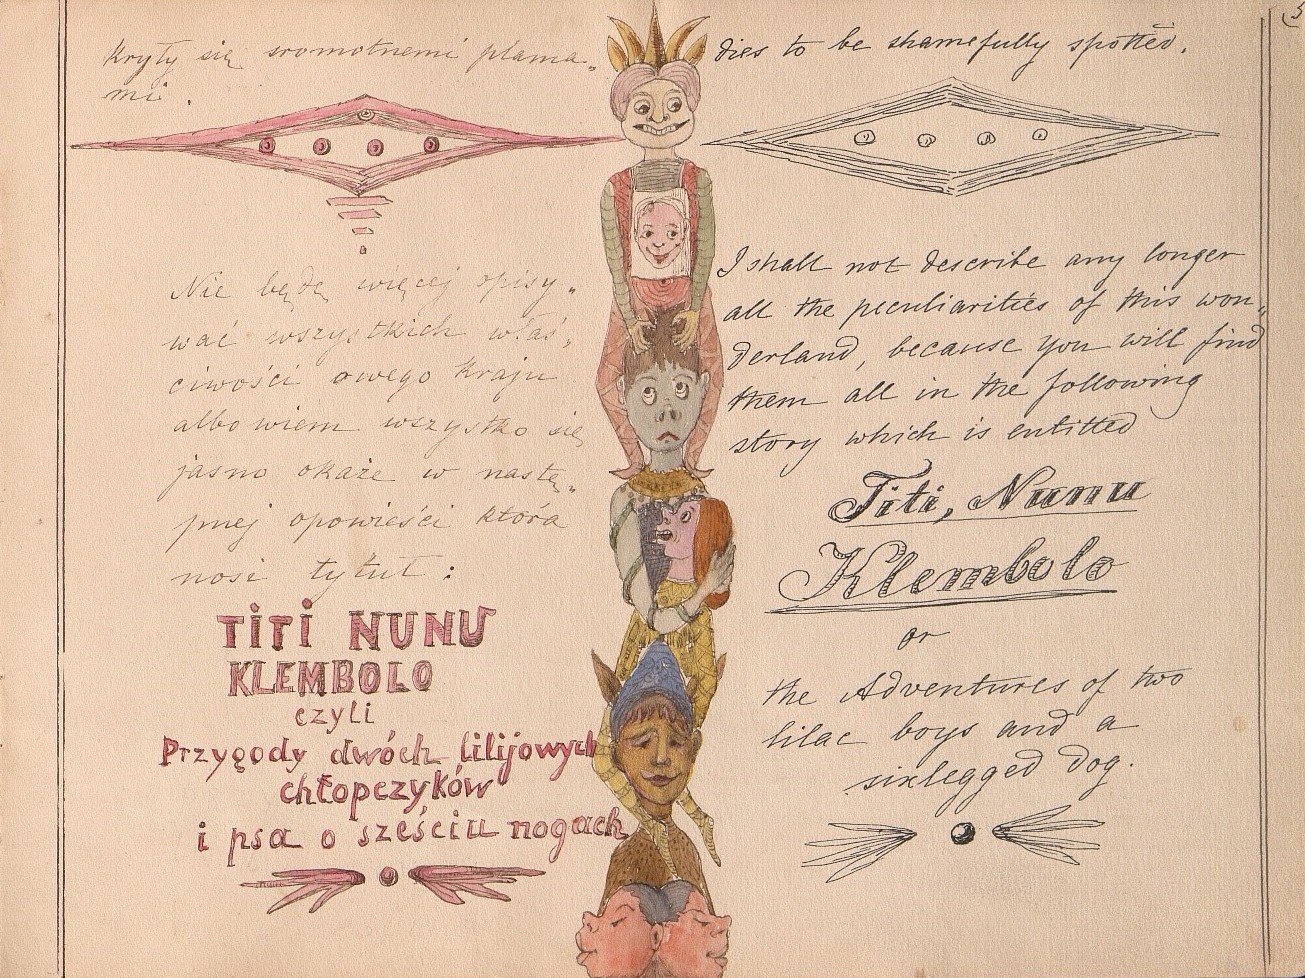 kryły się sromotnemi plama„
mi.
Nie będę więcej opisy„
wać wszystkich właś„
ciwości owego kraju
albowiem wszystko się
jasno okaże w nastę„
pnej opowieści która
nosi tytuł:
TITI NUNU
KLEMBOLO
czyli
Przygody dwóch lilijowych
chłopczyków
i psa o sześciu nogach
dies to be shamefully spotted.
I shall not describe any longer
all the peculiarities of this won„
derland, because you will find
them all in the following
story which is entitled
Titi, Nunu
Klembolo
or
the Adventures of two
lilac boys and a
sixlegged dog.